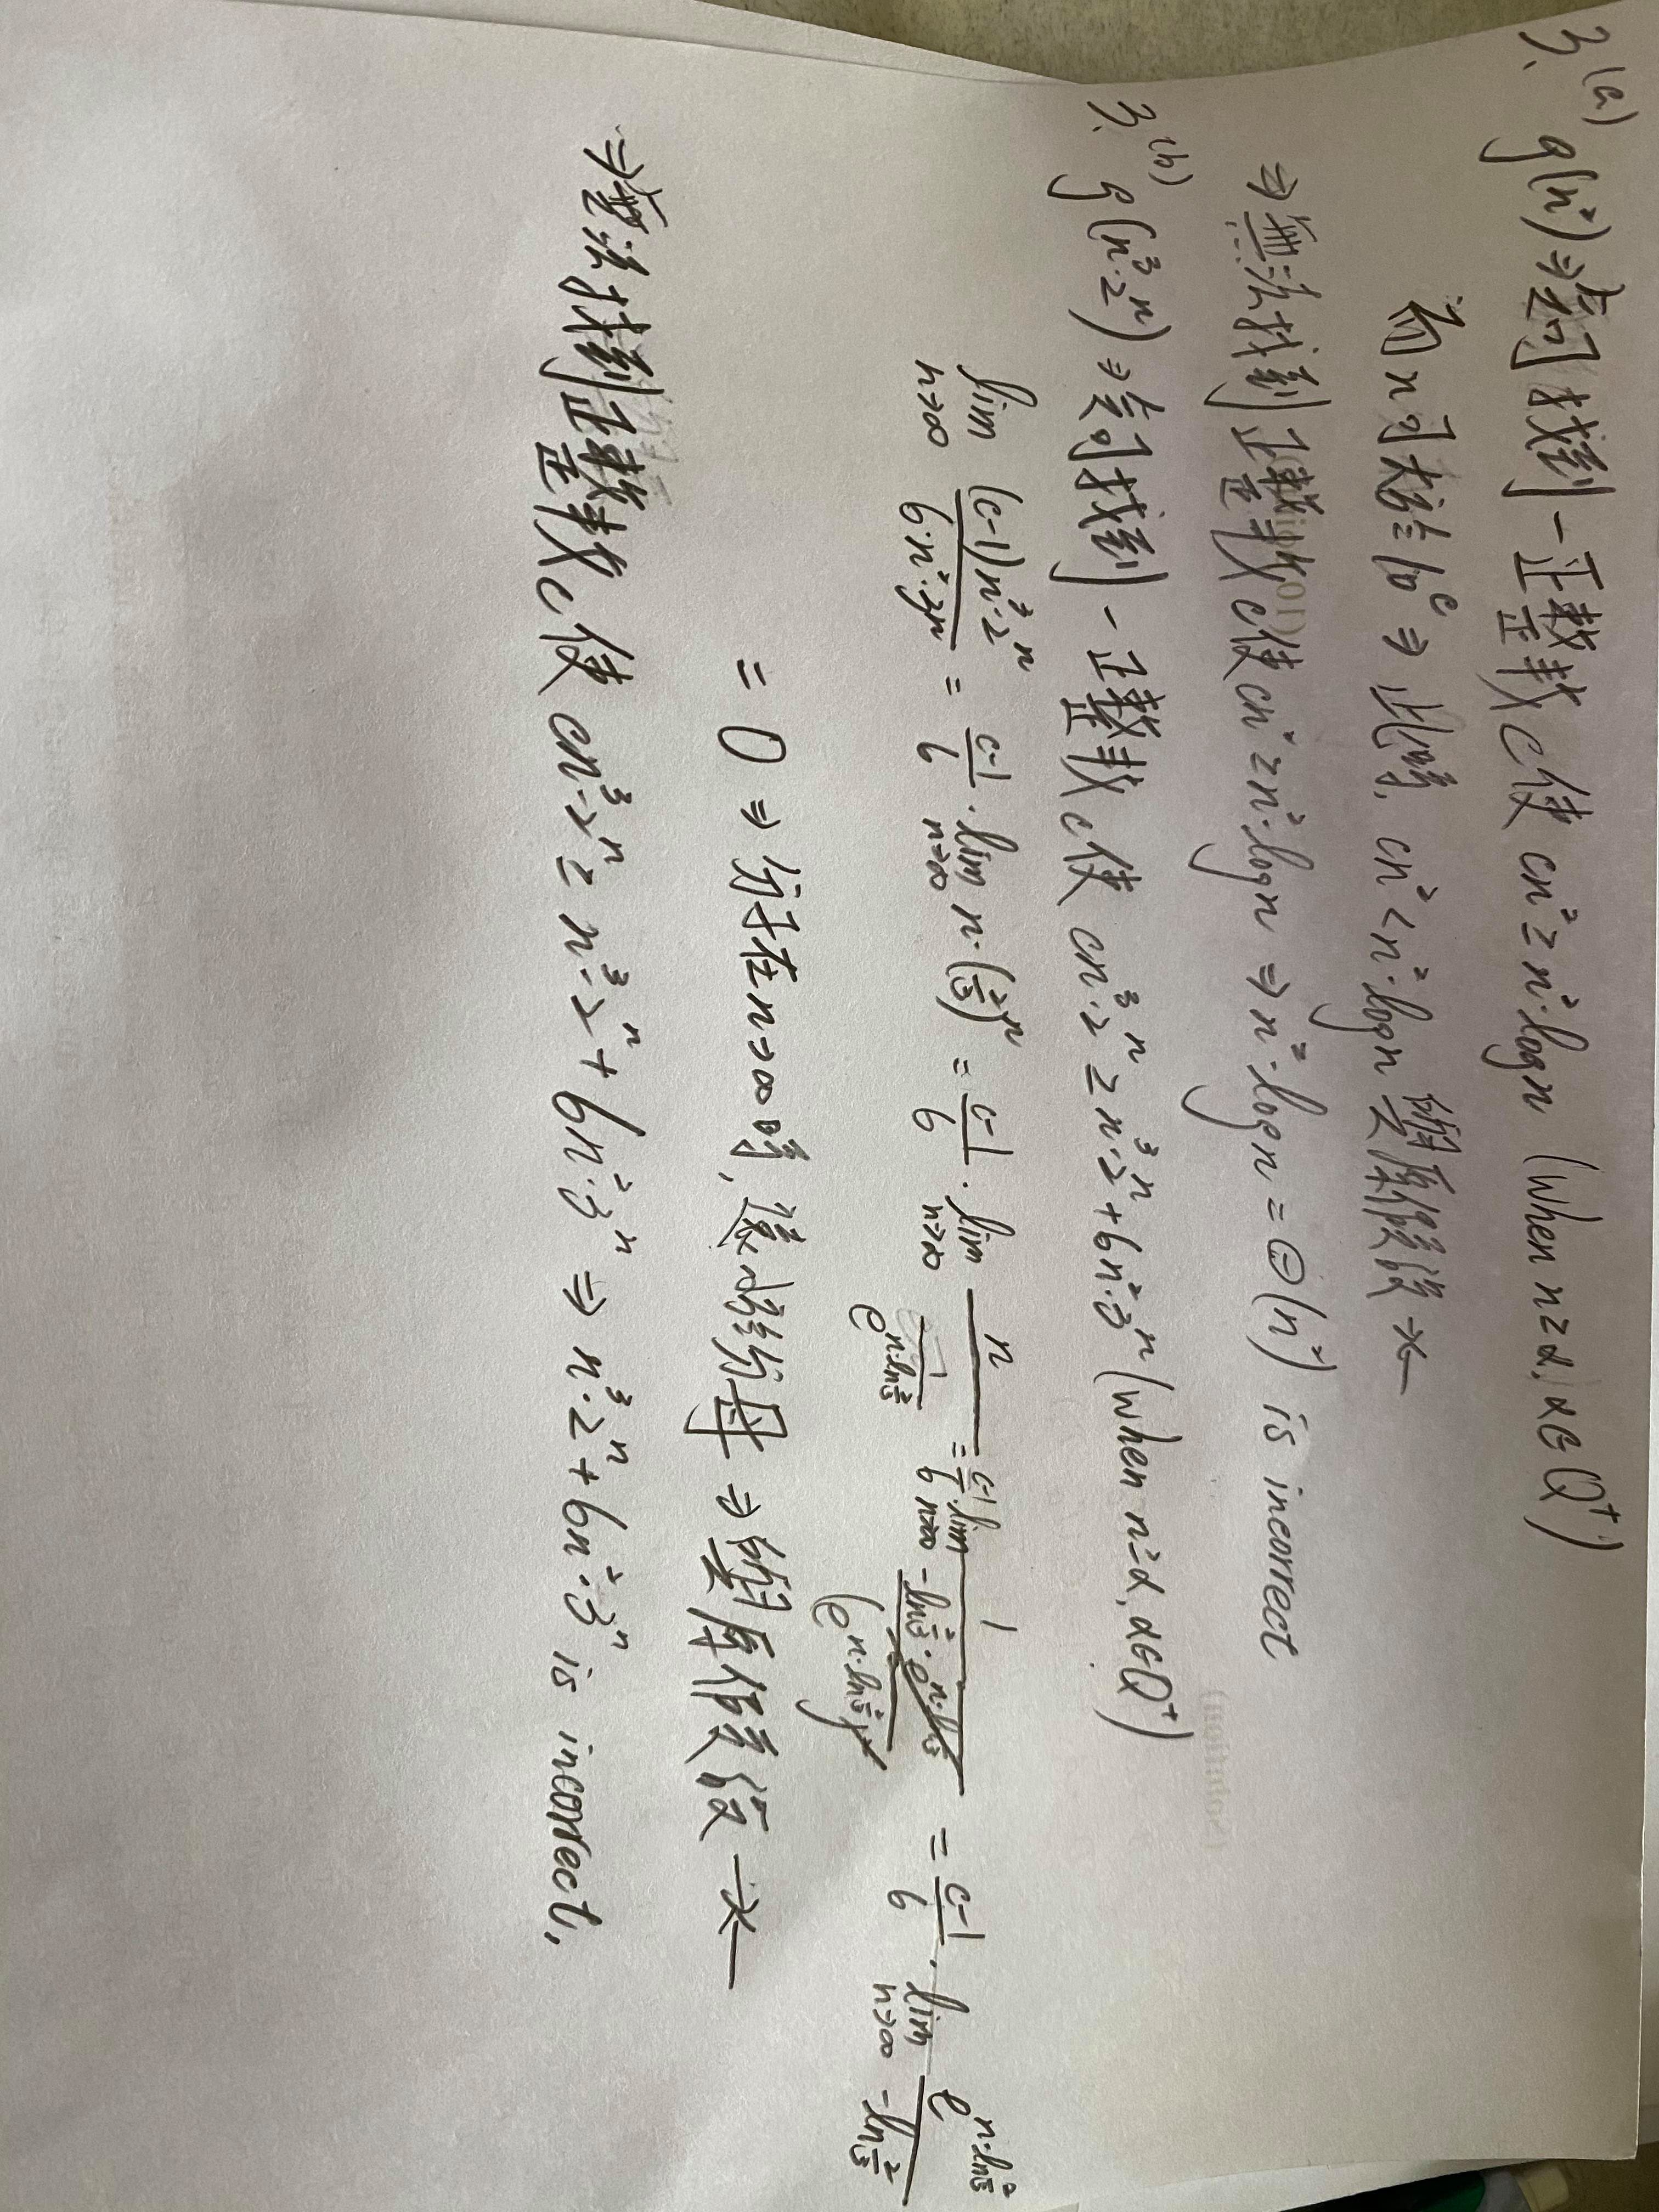 3.(a) g(n²) ⇒ 會可找到一正整數c使 cn² ≥ n²·logn (when n≥α, α∈Q⁺)
而n可大於10^c ⇒ 此時, cn² < n²·logn 與原假設→←
⇒ 無法找到正整數c使cn² ≥ n²·logn ⇒ n²·logn = Θ(n²) is incorrect
3.(b) g(n³·2ⁿ) ⇒ 會可找到一正整數c使 cn³·2ⁿ ≥ n³·2ⁿ + 6n²·3ⁿ (when n≥α, α∈Q⁺)
lim n→∞ (c-1)n³·2ⁿ / 6·n²·3ⁿ = c-1/6 · lim n→∞ n·(2/3)ⁿ = c-1/6 · lim n→∞ n / (1/e^(n·ln2/3)) = c-1/6 · lim n→∞ 1 / (-ln2/3·e^(n·ln2/3) / (e^(n·ln2/3))²) = c-1/6 · lim n→∞ e^(n·ln2/3) / -ln2/3
= 0 ⇒ 分子在n→∞時, 遠小於分母 ⇒ 與原假設→←
⇒ 無法找到正整數c使 cn³·2ⁿ ≥ n³·2ⁿ + 6n²·3ⁿ ⇒ n³·2ⁿ + 6n²·3ⁿ is incorrect.
(Solution)